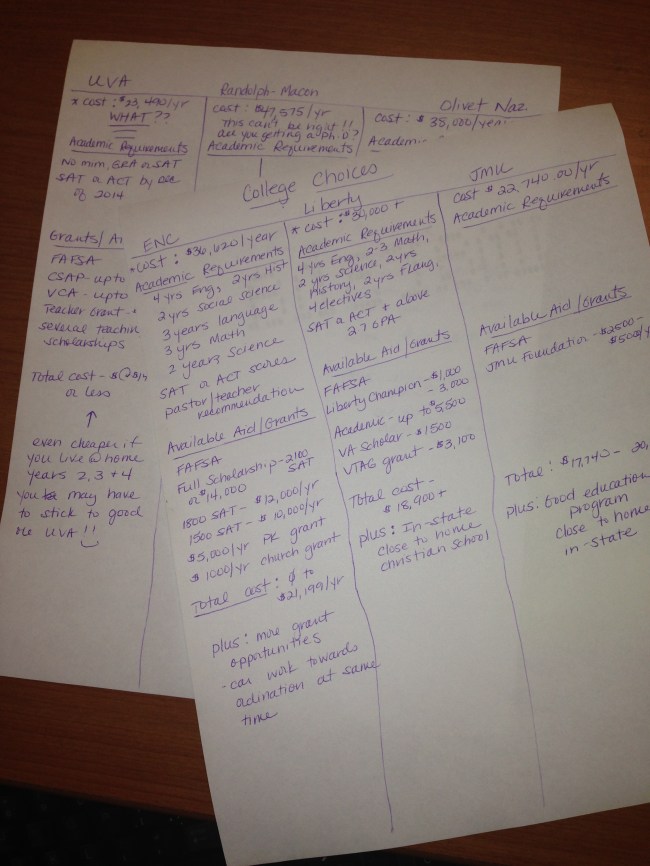 UVA
* cost: $23,490/yr
WHAT??
Academic Requirements
No min. GPA or SAT
SAT or ACT by Dec
of 2014
Grants/
FAFSA
CSAP - up to
VCA - up to
Teacher Grant -
several teaching
scholarships
Total cost -
or less
↑
even cheaper if
you live @ home
years 2, 3 + 4
you may have
to stick to good
ole UVA!!
Randolph-Macon
cost: $47,575/yr
This can't be right!!
are you getting a ph.D?
Academic Requirements
Olivet Naz
Cost: $35,000/year
Academi
College Choices
ENC
* cost: $36,620/year
Academic Requirements
4 yrs Eng, 2 yrs Hist
2 yrs Social Science
3 years language
3 yrs Math
2 years Science
SAT or ACT scores
pastor/teacher
recommendation
Available Aid/Grants
FAFSA
Full Scholarship - 2100 SAT
or $14,000
1800 SAT - $12,000/yr
1500 SAT - $10,000/yr
$5,000/yr PK grant
$1000/yr church grant
Total cost: 0 to
$21,199/yr
plus: more grant
opportunities
- can work towards
ordination at same
time
Liberty
* cost: $30,000 +
Academic Requirements
4 yrs Eng, 2-3 Math,
2 yrs Science, 2 yrs
History, 2 yrs Flang,
4 electives
SAT or ACT + above
2.7 GPA
Available Aid/Grants
FAFSA
Liberty Champion - $1,000
- 3,000
Academic - up to $5,500
VA Scholar - $1500
VTAG grant - $3,100
Total cost -
$18,900+
plus: In-state
close to home
christian school
JMU
Cost $22,740.00/yr
Academic Requirements
Available Aid/Grants
FAFSA
JMU Foundation - $2500-
$500/y
Total: $17,740 - 20,
plus: Good education
program
close to home
in-state